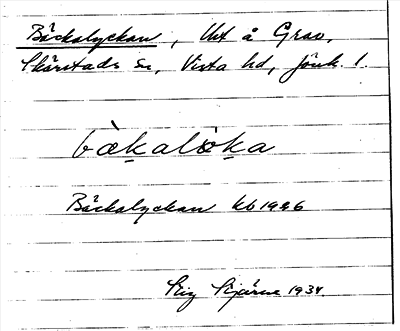 Bäckalyckan, Utt å Grav,
Skärstads sn, Vista hd, Jönk. l.
bækalòka
Bäckalyckan kb 1926
Stig Stjärne 1934.